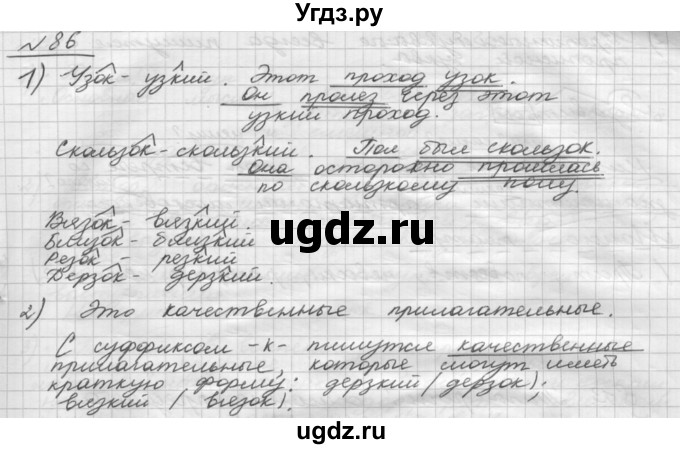 Угдз.ру
№86
1) Узок - узкий. Этот проход узок.
Он пролез через этот
узкий проход.
Скользок - скользкий. Пол был скользок.
Она осторожно прошлась
по скользкому полу.
Вязок - вязкий.
Близок - близкий
Резок - резкий
Дерзок - дерзкий.
ugdz.ru
2) Это качественные прилагательные.
С суффиксом -к- пишутся качественные
прилагательные, которые могут иметь
краткую форму: дерзкий (дерзок);
вязкий (вязок).
ugdz.ru